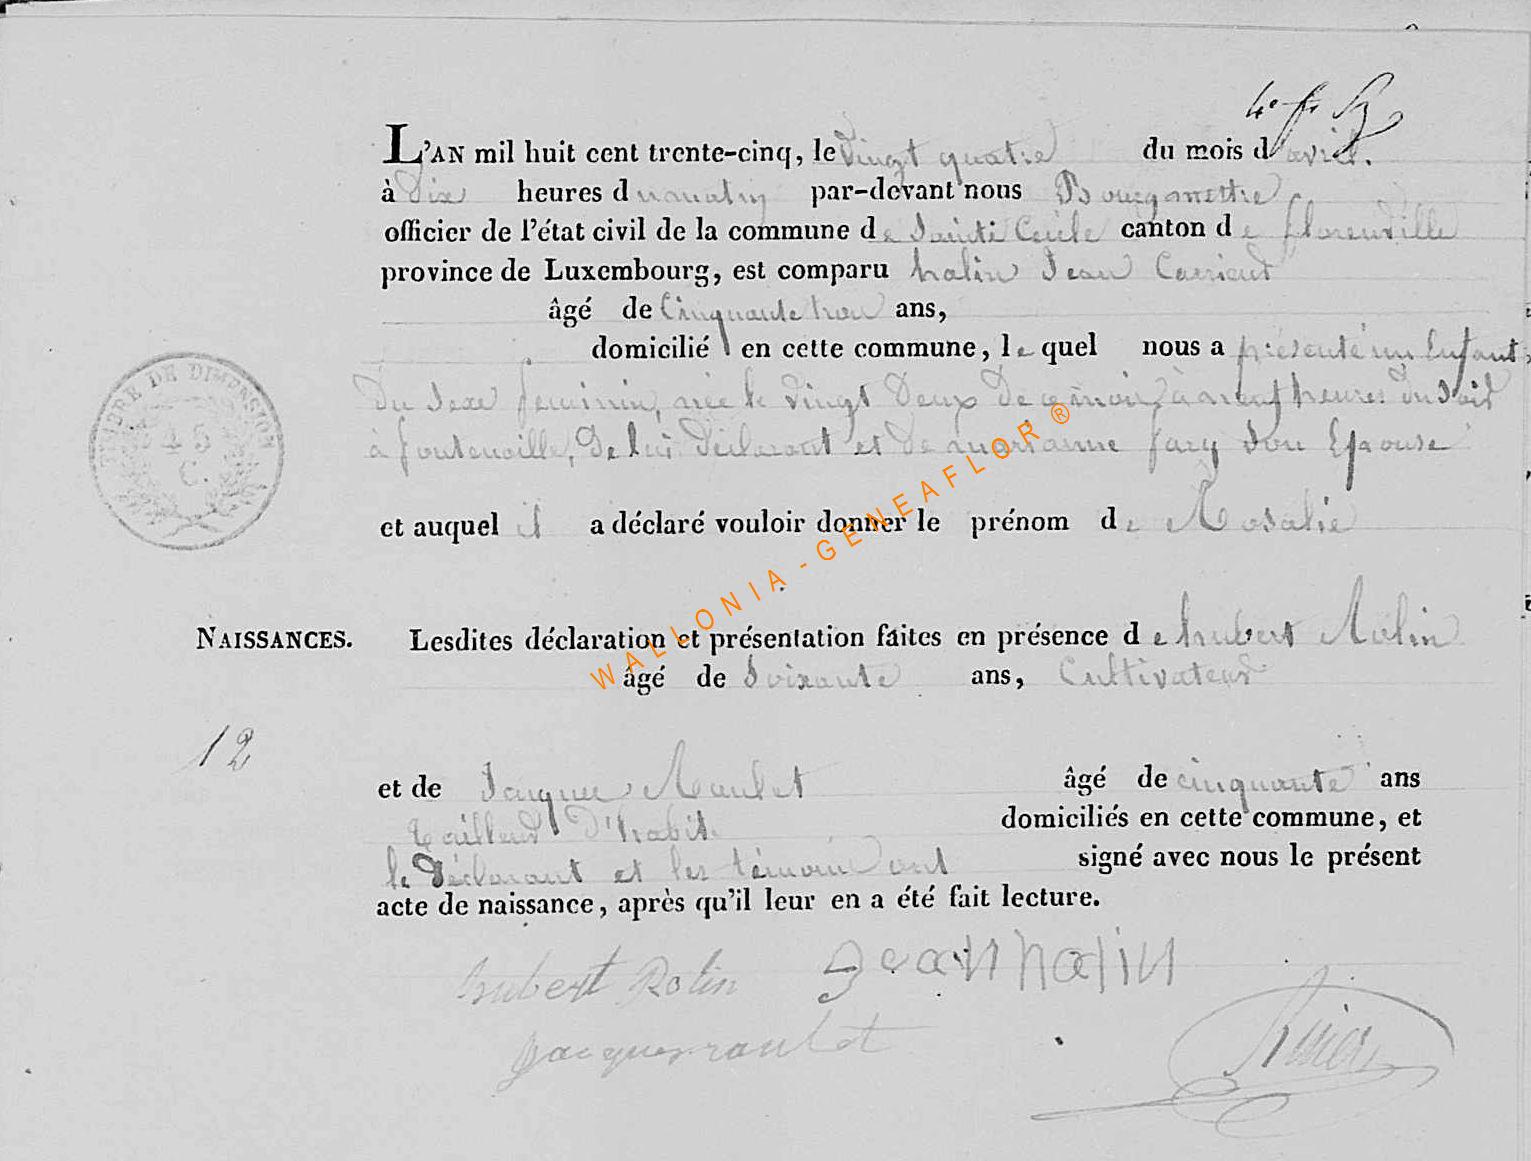 L'AN mil huit cent trente-cinq, le vingt quatre du mois d'avril.
à dix heures du matin par-devant nous Bourgmestre
officier de l'état civil de la commune de Sainte Cecile canton de florenville
province de Luxembourg, est comparu halin Jean
âgé de Cinquante trois ans,
domicilié en cette commune, lequel nous a présenté un Enfant
du Sexe feminin, née le vingt Deux de ce mois, à neuf heures du Soir
à fontenoille, De lui Déclarant et de marianne Son Epouse
et auquel il a déclaré vouloir donner le prénom de Rosalie
NAISSANCES. Lesdites déclaration et présentation faites en présence de hubert Rolin
âgé de Soixante ans, Cultivateur
12
et de Jacques Raulet âgé de cinquante ans
tailleur D'habit. domiciliés en cette commune, et
le Déclarant et les témoins ont signé avec nous le présent
acte de naissance, après qu'il leur en a été fait lecture.
hubert Rolin Jean halin
jacques raulet
TIMBRE DE DIMENSION
45
C.
WALLONIA-GENEAFLOR®